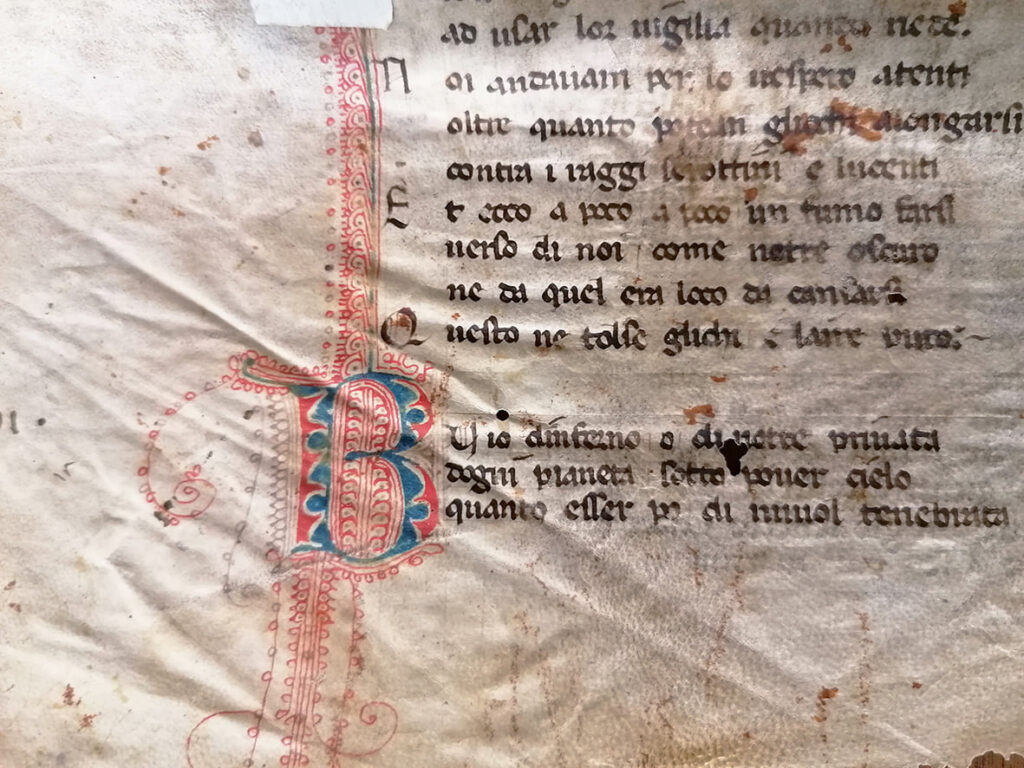 ad usar lor uigilia quando riede.
Noi andauam per lo uespero atenti
oltre quanto potean gliochi alongarsi
contra i raggi serottini e lucenti
Et ecco a poco a poco un fumo farsi
uerso di noi come notte oscuro
ne da quel era loco da cansarsi
Questo ne tolse gliochi e laire puro:~
Buio dinferno o di notte priuata
dogni pianeta sotto pouer cielo
quanto esser po di nuuol tenebrata